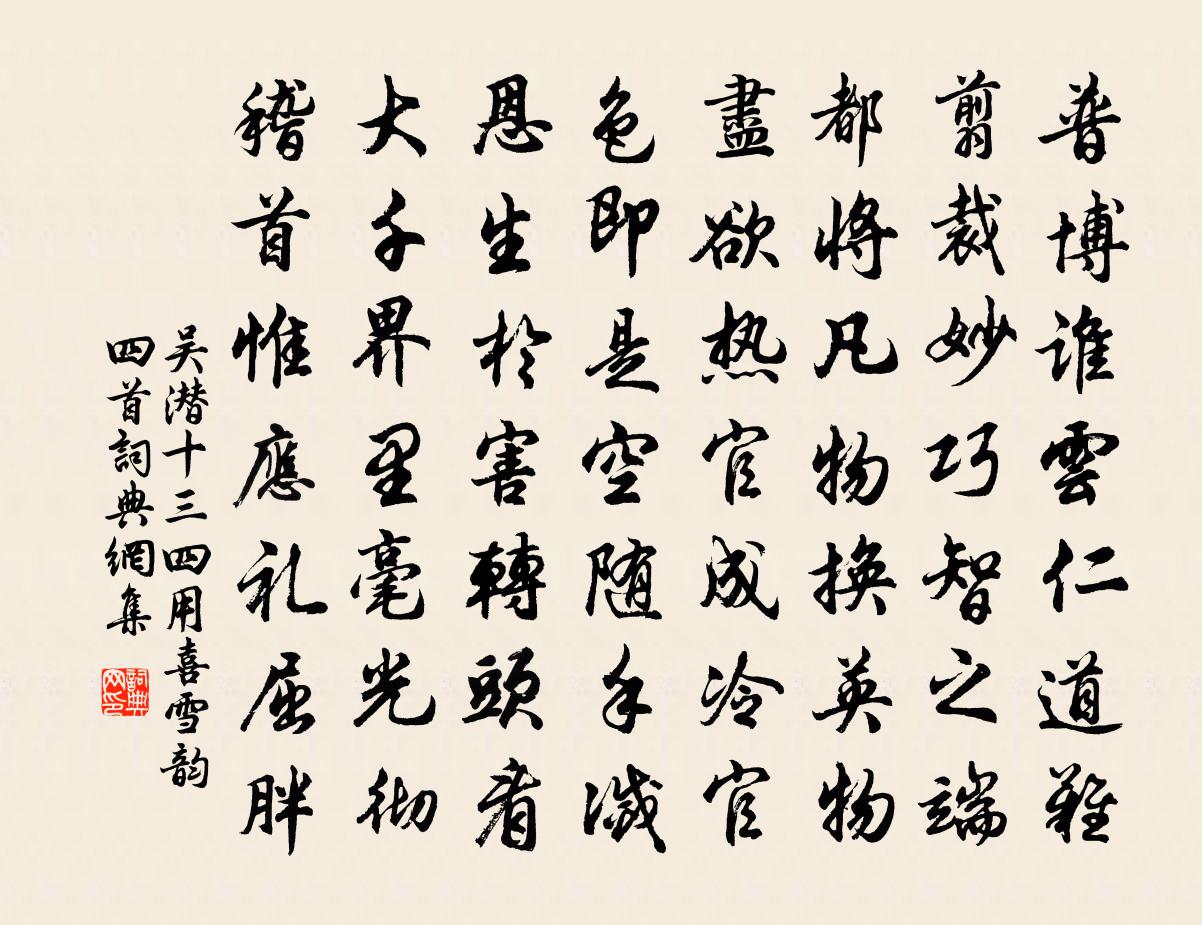 普博谁雲仁道難
翦裁妙巧智之端
都将凡物換英物
盡欲热官成冷官
色即是空随手滅
恩生於害轉頭看
大千界里毫光彻
稽首惟應礼屈胖
吴潜十三四用喜雪韵
四首詞典網集
詞典
网印